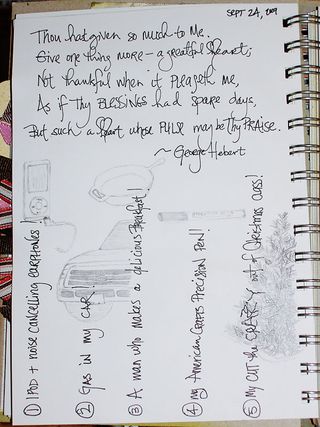 SEPT 24, 2009
Thou hast given so much to Me.
Give one thing more – a greatful Heart;
Not thankful when it Pleaseth me,
As if Thy BLESSINGS had spare days,
But such a Heart whose PULSE may be Thy PRAISE.
~ George Hebert
① IPOD + noise cancelling earphones!
② GAS in my CAR!
③ A man who makes a delicious Breakfast!
④ my American Crafts Precision Pen!
⑤ My CUT the CRAZY out of Christmas class!